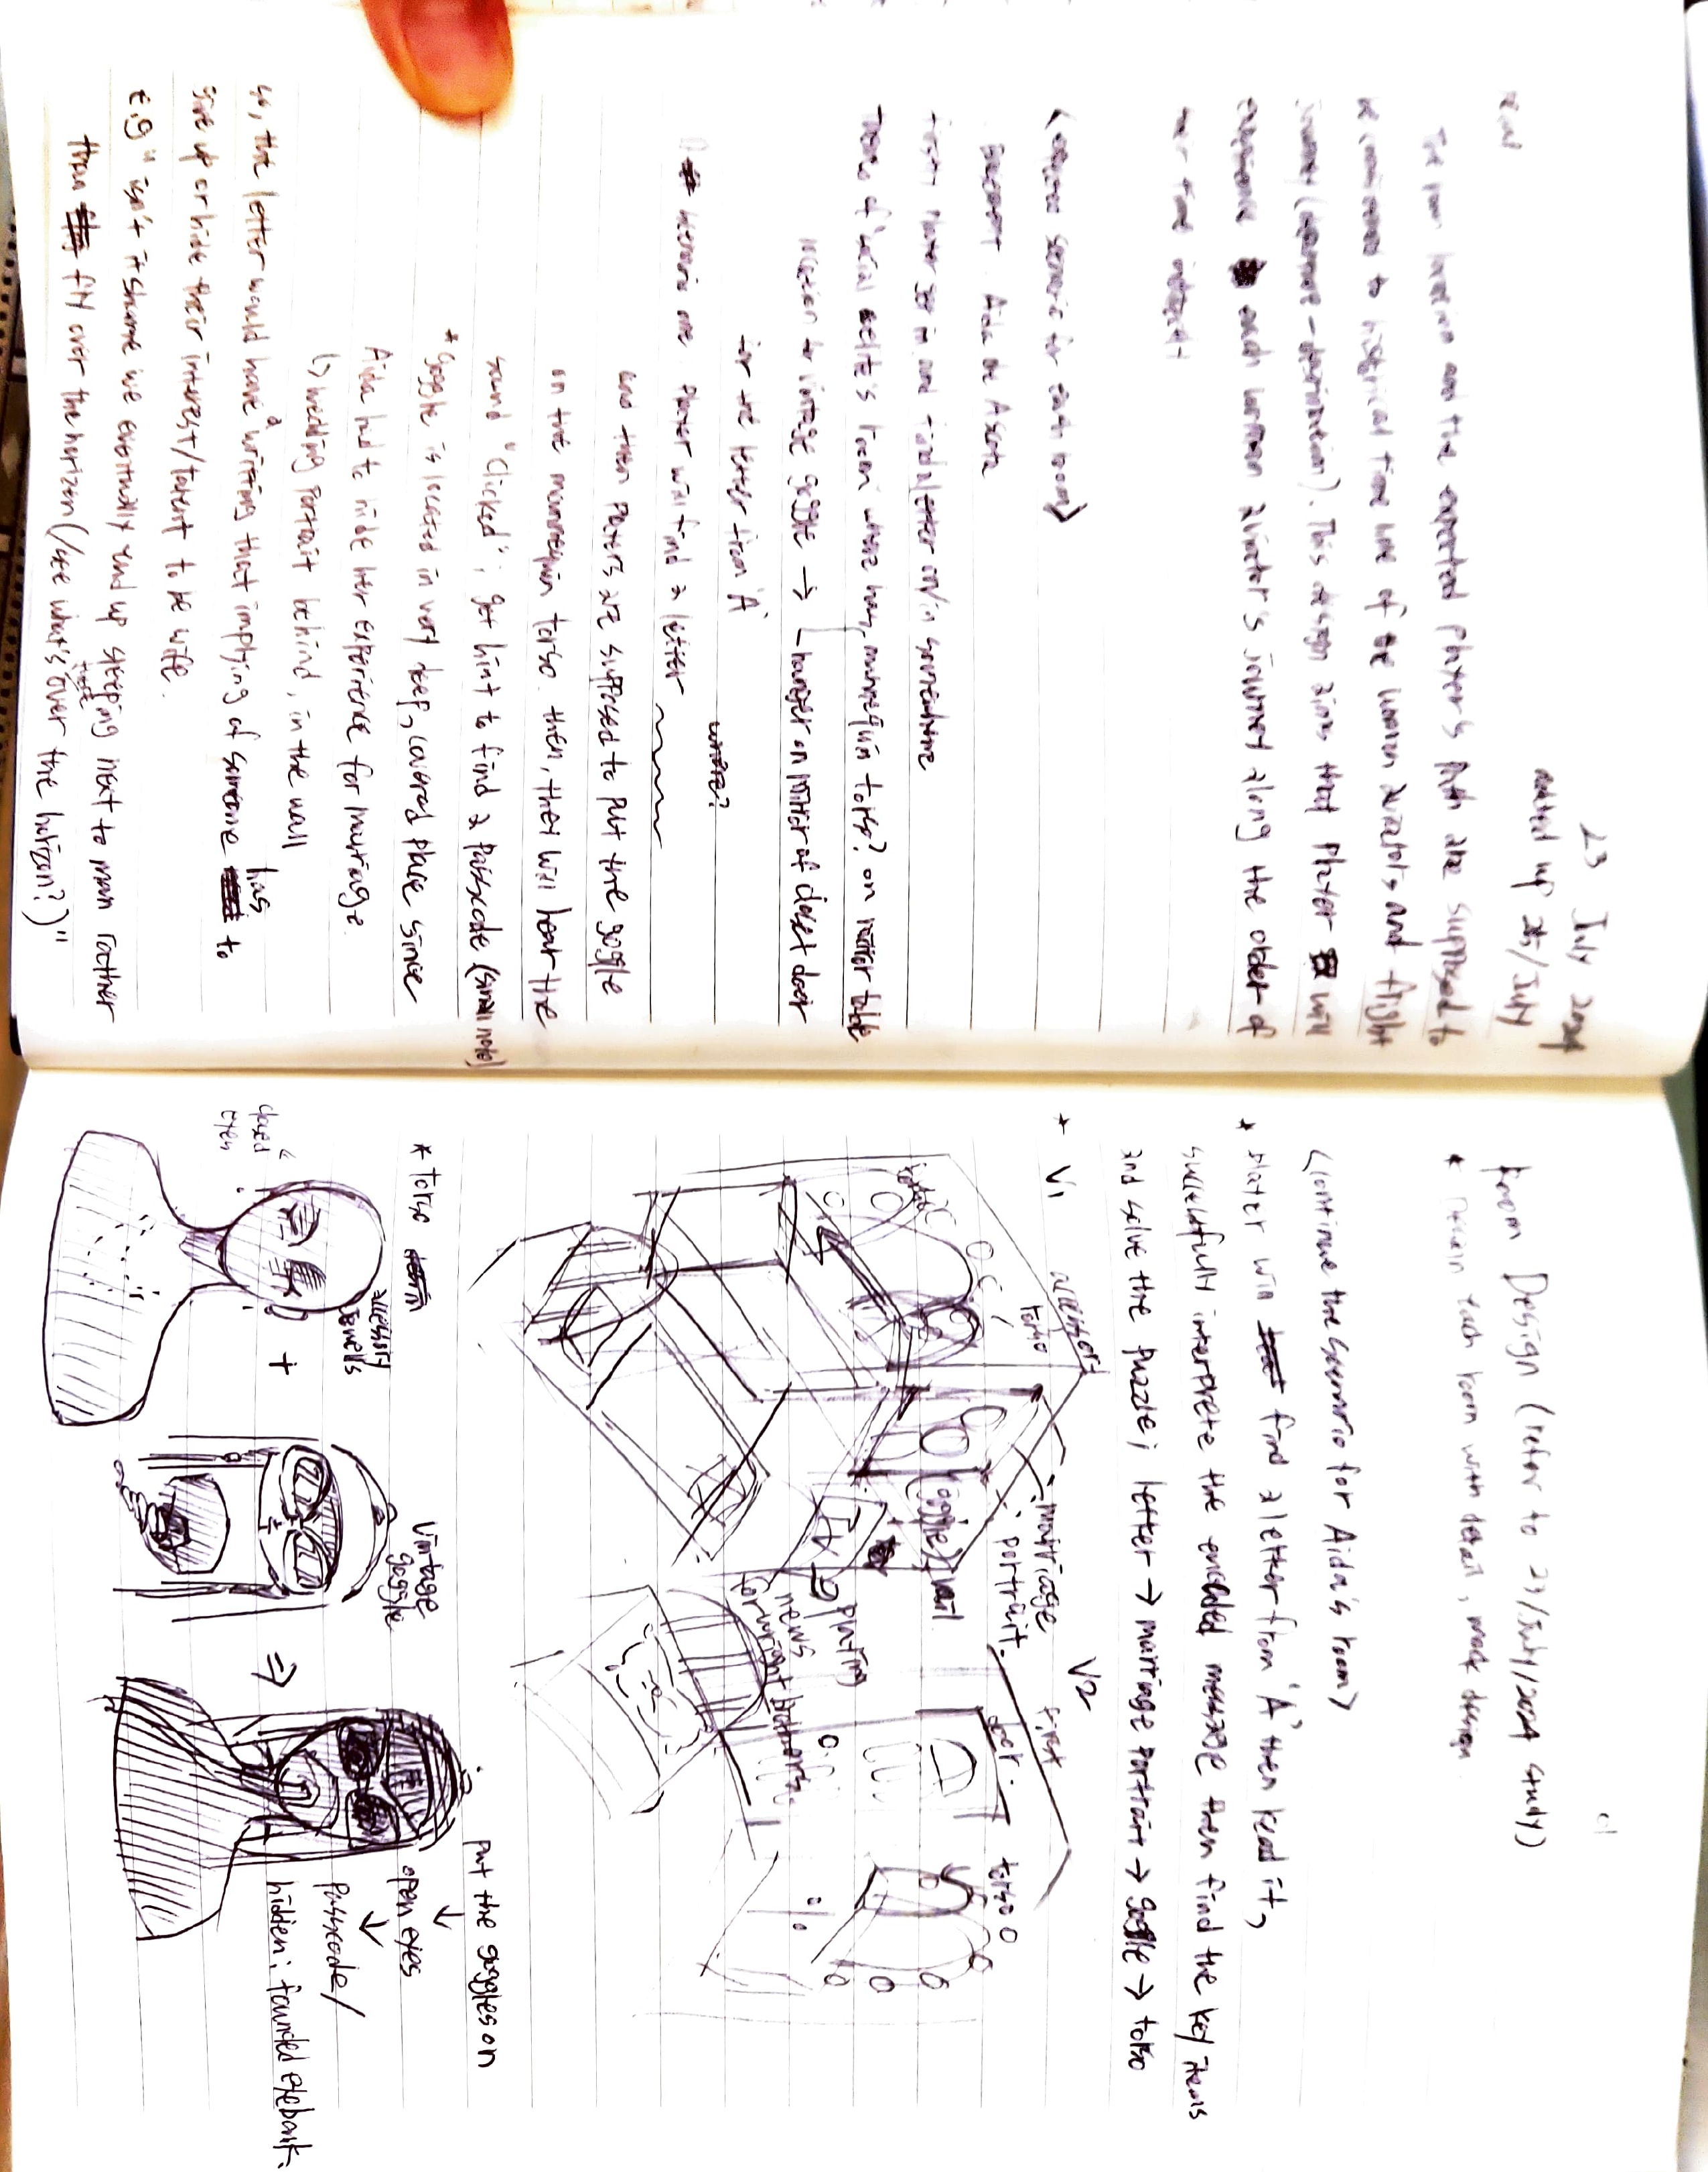 23 July 2024
added up 25/July
real
The plan version and the expected player's path are supposed to
be connected to historical time line of the women aviators and flight
journey (departure - destination). This design aims that player will
experience each woman aviator's journey along the order of
their time
<expected scenario for each room>
Aida de Acosta
first, player go in and find a letter on/in somewhere
There's 'social elite's room' where has, mannequin torso? on mirror table
location for vintage goggle → hanger on mirror of closet door
for the letter from 'A'
where?
scenario one player will find a letter
and then players are supposed to put the goggle
on the mannequin torso. then, they will hear the
sound "clicked"; get hint to find a passcode (small note)
* goggle is located in very deep, covered place since
Aida had to hide her experience for marriage.
↳ wedding portrait behind, in the wall
so, the letter would have a writing that implying of someone has to
give up or hide their interest/talent to be wife.
E.g " isn't it shame we eventually end up sleeping next to man rather
than fly over the horizon (/see what's over the horizon?)"
Room Design (refer to 23/July/2024 study)
* design each room with detail, mock design
<continue the scenario for Aida's room>
* player will find a letter from 'A' then read it,
successfully interprete the encoded message then find the key items
and solve the puzzle; letter → marriage portrait → goggle → torso
* V1
accessory
torso
marriage
portrait
(goggle) wall
TV
playing
news
for wright brothers.
V2
first
door.
torso
* torso
closed
eyes
accessory
jewells
+
Vintage
goggle
⇒
put the goggles on
↓
open eyes
↓
passcode /
hidden: founded eyeback.